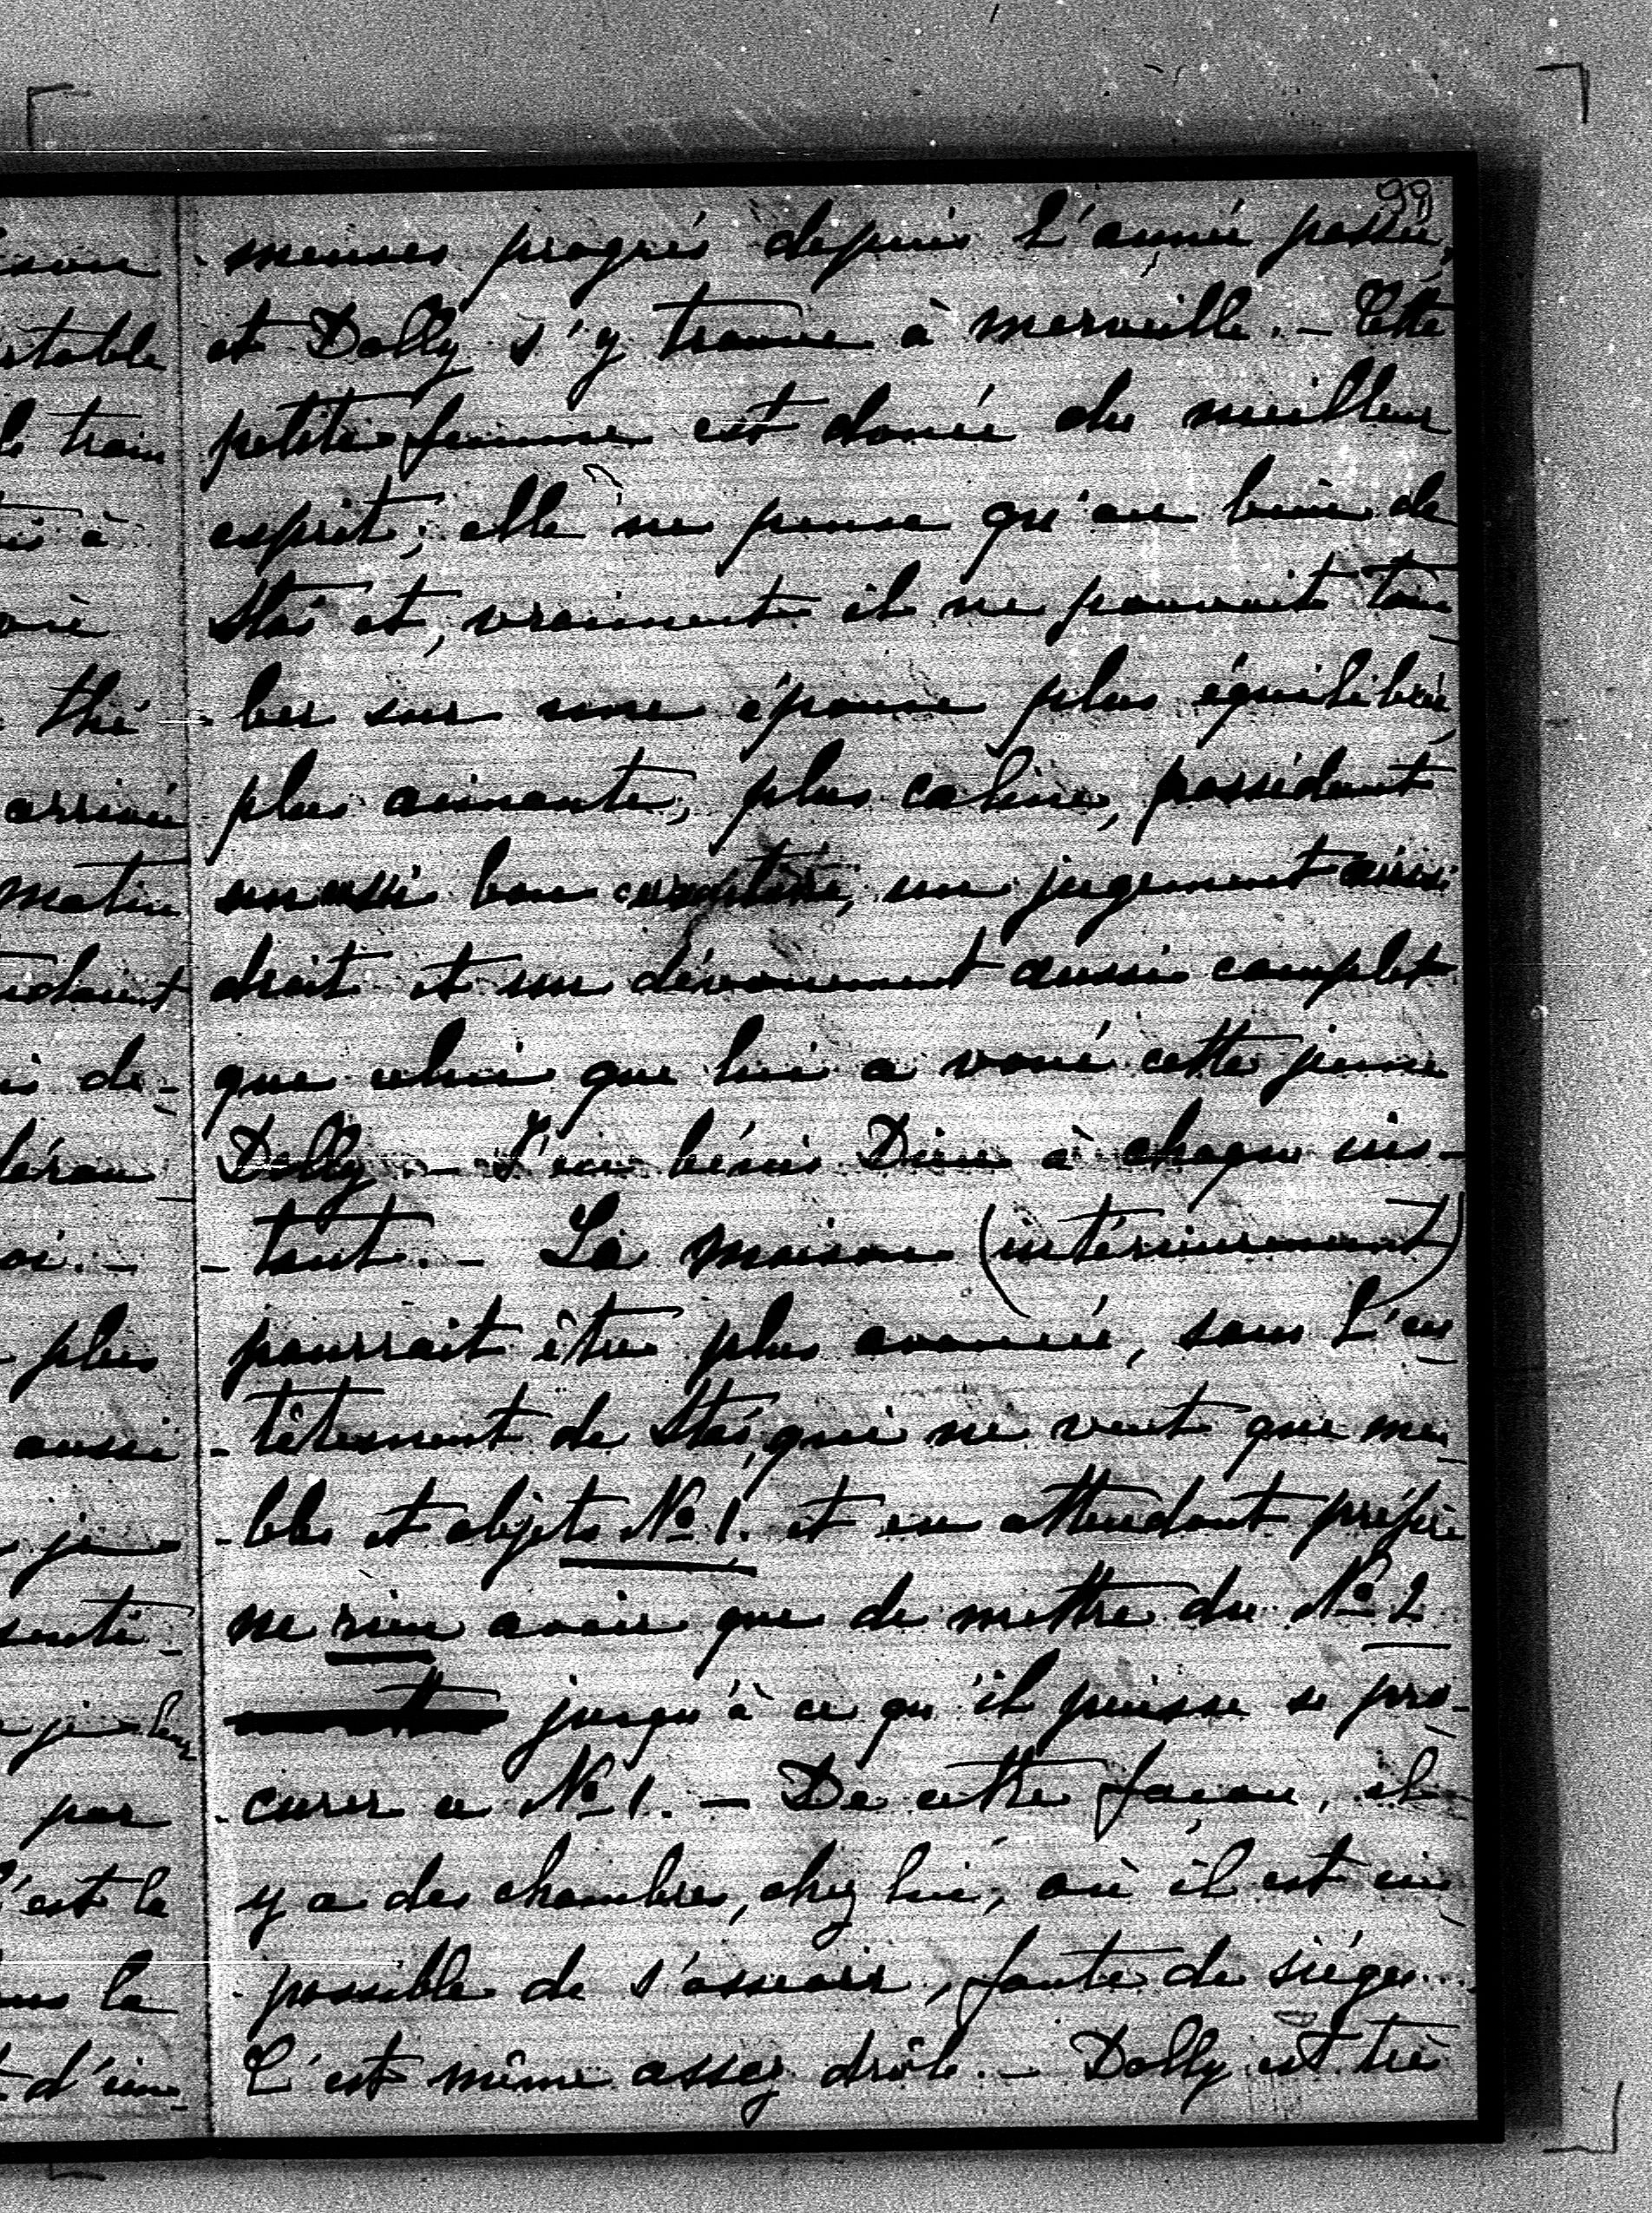 99
-menses progrès depuis l'année passée,
et Dolly s'y trouve à merveille. - Cette
petite femme est douée du meilleur
esprit; elle ne pense qu'au bien de
Staï et, vraiment il ne pouvait tom-
-ber sur une épouse plus équilibrée,
plus aimante, plus caline, possédant
un aussi bon caractère, un jugement aussi
droit et un dévouement aussi complet
que celui que lui a voué cette jeune
Dolly. - J'en bénis Dieu à chaque ins-
-tant. - La maison (intérieurement)
pourrait être plus avancée, sans l'en-
-têtement de Staï, qui ne veut que meu-
-bles et objets No 1. et en attendant préfère
ne rien avoir que de mettre du No 2
jusqu'à ce qu'il puisse se pro-
-curer ce No 1. - De cette façon, il
y a des chambres, chez lui, où il est im-
-possible de s'asseoir, faute de sièges...
C'est même assez drôle. - Dolly est très